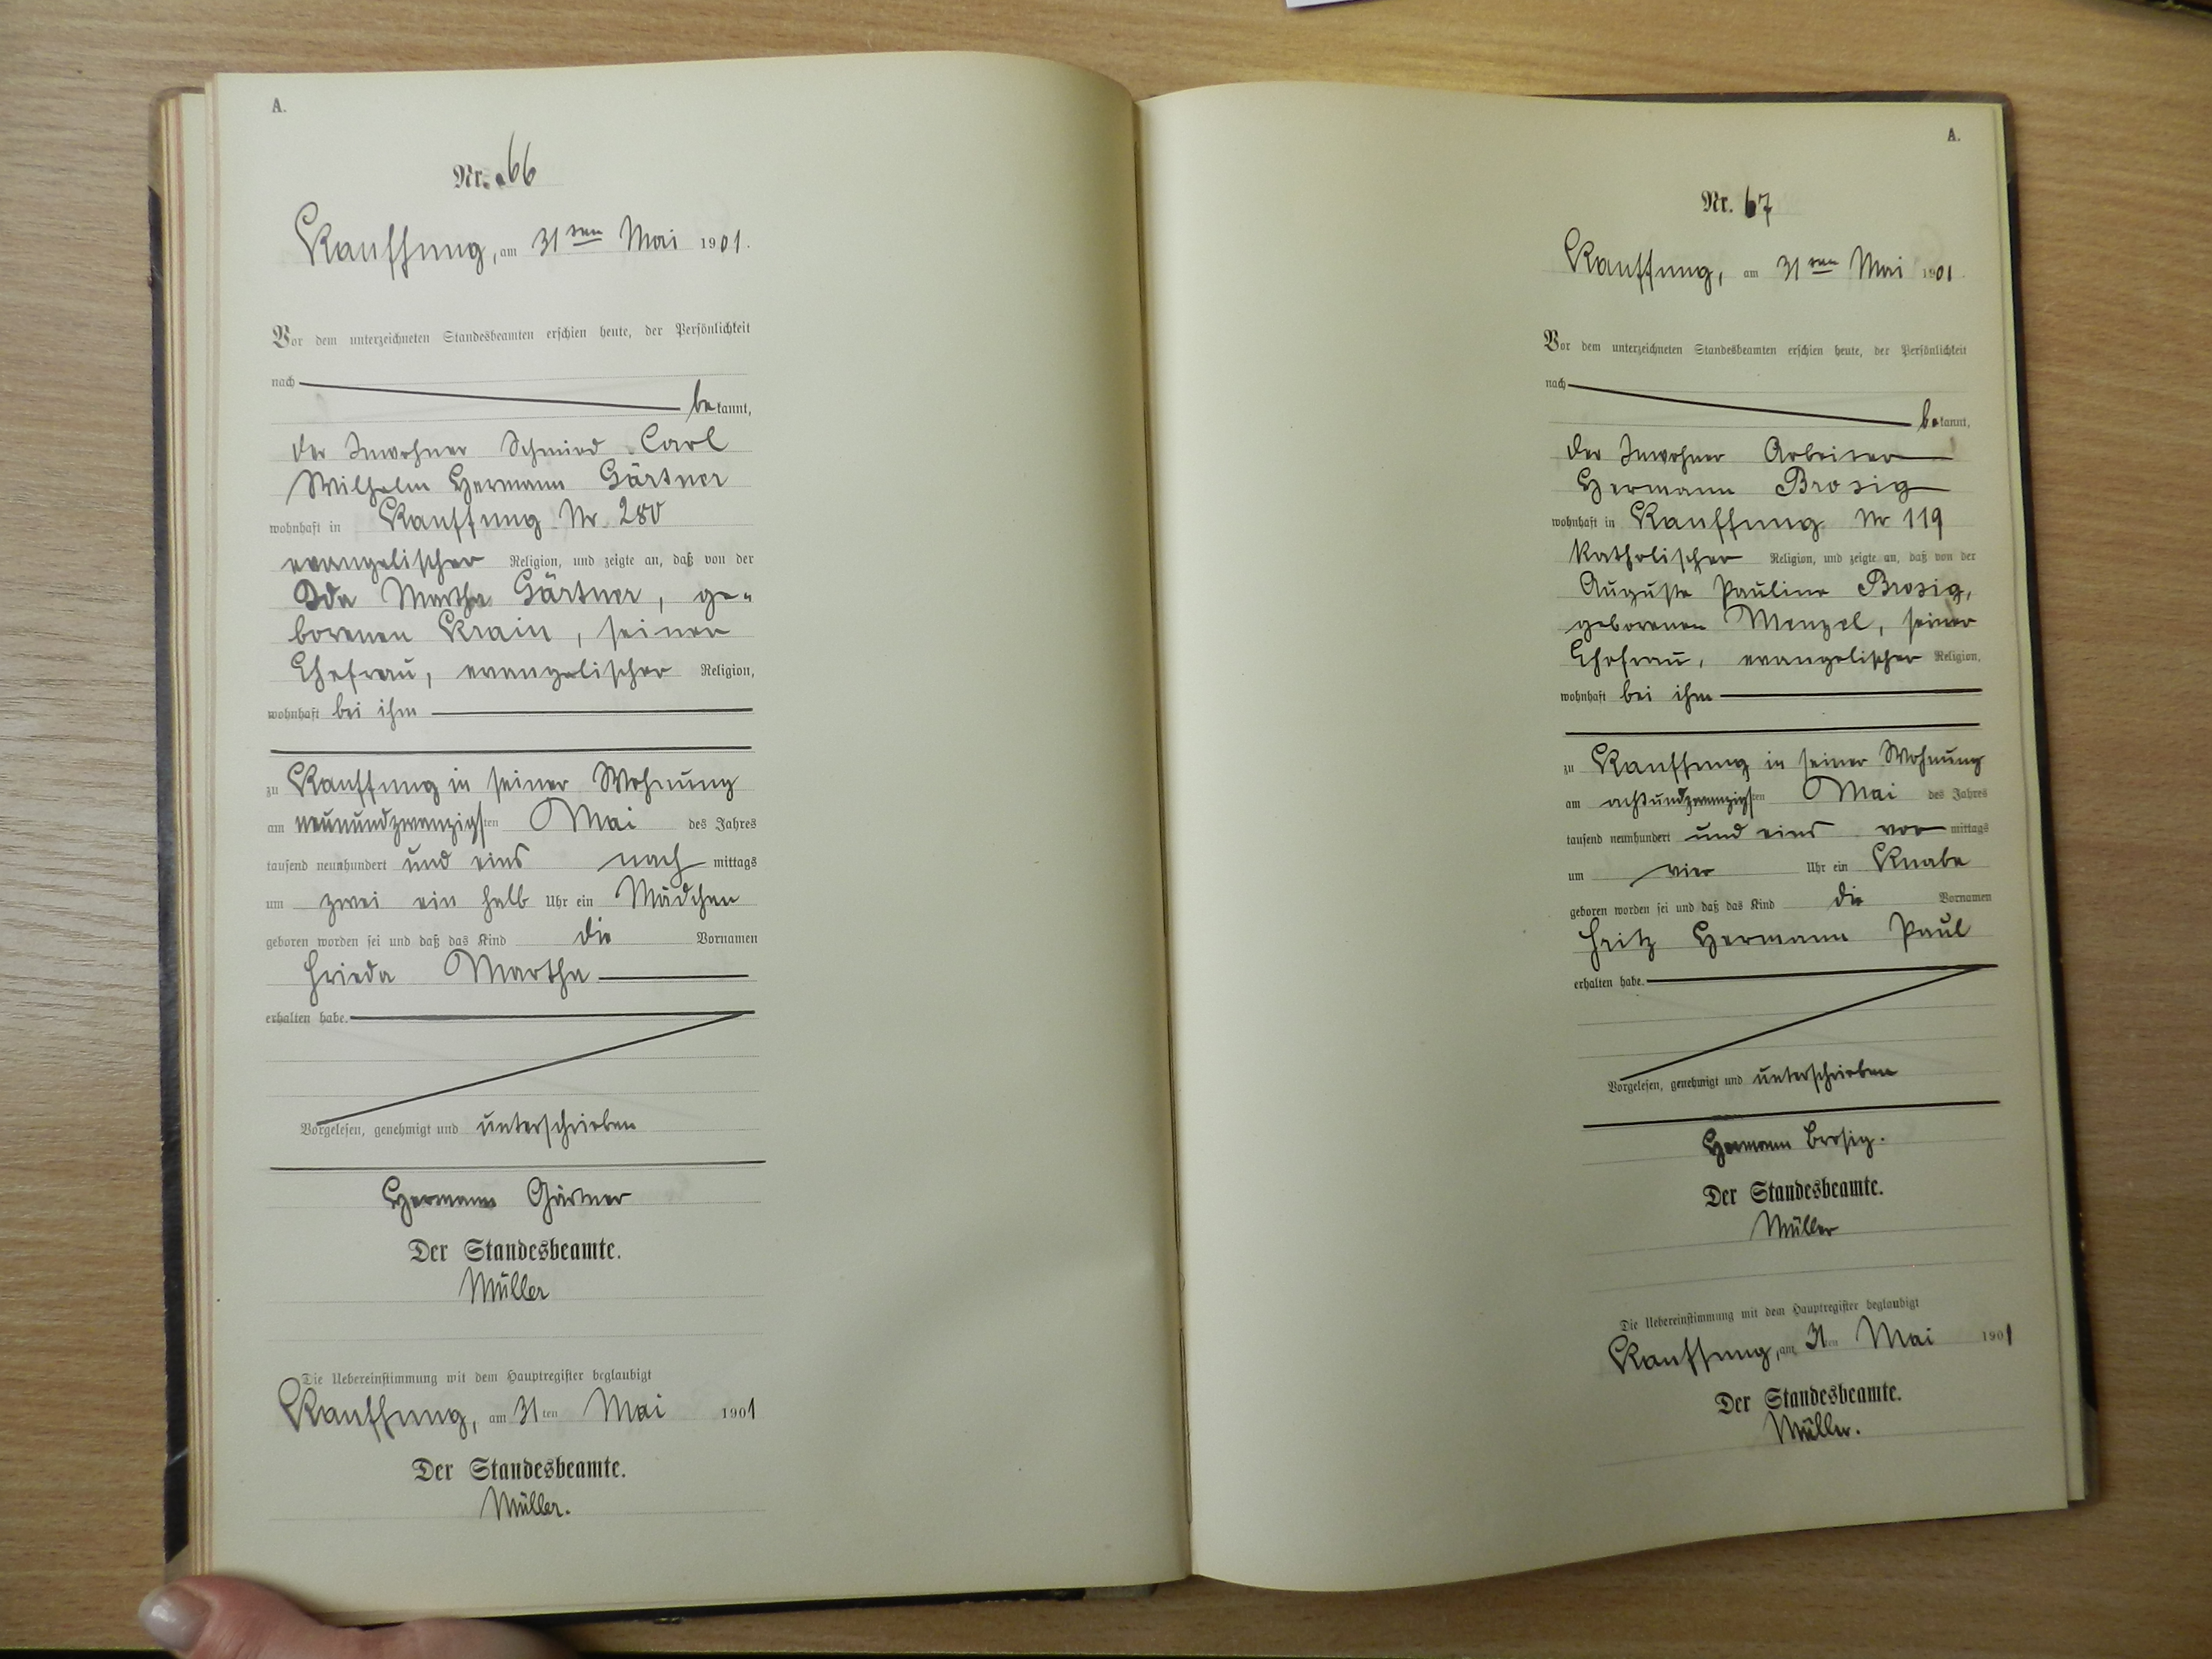 A.
Nr. 66
Kauffung, am 31ten Mai 1901.
Vor dem unterzeichneten Standesbeamten erschien heute, der Persönlichkeit
nach
bekannt,
der Inwohner Schmied Carl
Wilhelm Hermann Gärtner
wohnhaft in Kauffung Nr. 280
evangelischer Religion, und zeigte an, daß von der
Ida Martha Gärtner, ge-
borenen Krain, seiner
Ehefrau, evangelischer Religion,
wohnhaft bei ihm
zu Kauffung in seiner Wohnung
am neunundzwanzigsten Mai des Jahres
tausend neunhundert und eins nachmittags
um zwei ein halb Uhr ein Mädchen
geboren worden sei und daß das Kind die Vornamen
Frieda Martha
erhalten habe.
Vorgelesen, genehmigt und unterschrieben
Hermann Gärtner
Der Standesbeamte.
Müller
Die Uebereinstimmung mit dem Hauptregister beglaubigt
Kauffung, am 31ten Mai 1901
Der Standesbeamte.
Müller.
A.
Nr. 67
Kauffung, am 31ten Mai 1901.
Vor dem unterzeichneten Standesbeamten erschien heute, der Persönlichkeit
nach
bekannt,
der Inwohner Arbeiter
Hermann Brosig
wohnhaft in Kauffung Nr 119
katholischer Religion, und zeigte an, daß von der
Auguste Pauline Brosig,
geborenen Menzel, seiner
Ehefrau, evangelischer Religion,
wohnhaft bei ihm
zu Kauffung in seiner Wohnung
am achtundzwanzigsten Mai des Jahres
tausend neunhundert und eins vormittags
um vier Uhr ein Knabe
geboren worden sei und daß das Kind die Vornamen
Fritz Hermann Paul
erhalten habe.
Vorgelesen, genehmigt und unterschrieben
Hermann Brosig.
Der Standesbeamte.
Müller
Die Uebereinstimmung mit dem Hauptregister beglaubigt
Kauffung, am 31ten Mai 1901
Der Standesbeamte.
Müller.